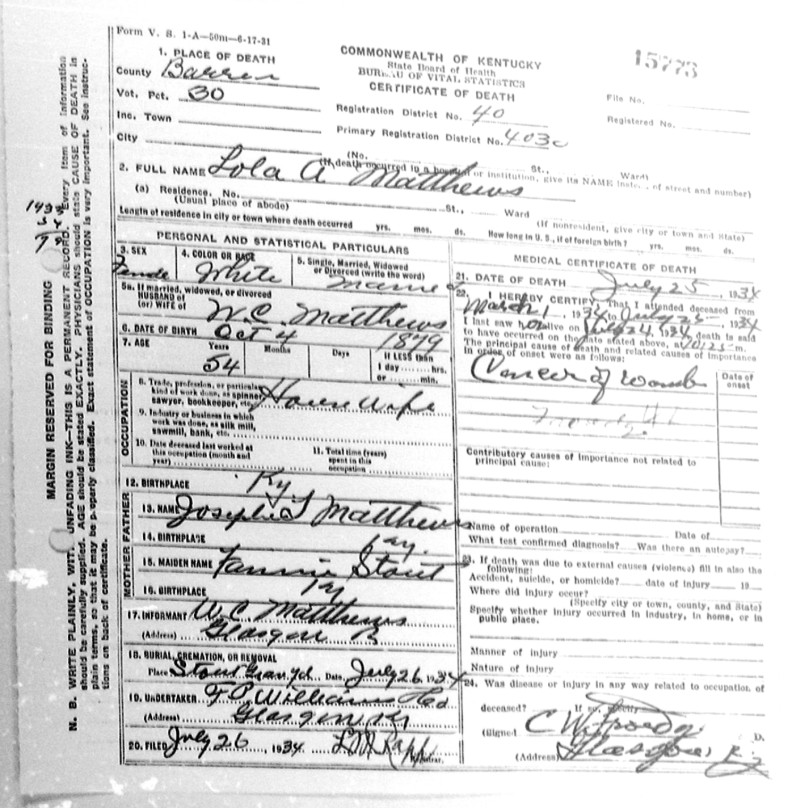 Form V. S. 1-A—50m—6-17-31
15773
COMMONWEALTH OF KENTUCKY
State Board of Health
BUREAU OF VITAL STATISTICS
CERTIFICATE OF DEATH
1. PLACE OF DEATH
County Barren
Vot. Pct. 30
Inc. Town
City
File No.
Registered No.
Registration District No. 40
Primary Registration District No.
(No. St., Ward)
(If death occurred in a hospital or institution, give its NAME of street and number)
2. FULL NAME Lola A Matthews
(a) Residence. No. St., Ward
(Usual place of abode) (If nonresident, give city or town and State)
Length of residence in city or town where death occurred yrs. mos. ds. How long in U. S., if of foreign birth? yrs. mos. ds.
PERSONAL AND STATISTICAL PARTICULARS
3. SEX 4. COLOR OR RACE 5. Single, Married, Widowed
or Divorced (write the word)
Female White Married
5a. If married, widowed, or divorced
HUSBAND OF
(or) WIFE OF W. C. Matthews
6. DATE OF BIRTH Oct 4 1879
7. AGE Years Months Days If LESS than
54 1 day hrs.
or min.
OCCUPATION
8. Trade, profession, or particular
kind of work done, as spinner,
sawyer, bookkeeper, etc. House Wife
9. Industry or business in which
work was done, as silk mill,
sawmill, bank, etc.
10. Date deceased last worked at
this occupation (month and
year)
11. Total time (years)
spent in this
occupation
12. BIRTHPLACE Ky
FATHER
13. NAME Matthews
14. BIRTHPLACE Ky.
MOTHER
15. MAIDEN NAME Fannie Stout
16. BIRTHPLACE Ky
17. INFORMANT W. C. Matthews
(Address) Glasgow
18. BURIAL, CREMATION, OR REMOVAL
Place Stout Date July 26 1934
19. UNDERTAKER
(Address) Glasgow, Ky
20. FILED July 26, 1934 Registrar.
MEDICAL CERTIFICATE OF DEATH
21. DATE OF DEATH July 25, 1934
22. I HEREBY CERTIFY, That I attended deceased from
March 1, 1934 to July 25, 1934
I last saw alive on July 24, 1934, death is said
to have occurred on the date stated above, at m.
The principal cause of death and related causes of importance
in order of onset were as follows:
Date of
onset
Cancer of womb
Contributory causes of importance not related to
principal cause:
Name of operation Date of
What test confirmed diagnosis? Was there an autopsy?
23. If death was due to external causes (violence) fill in also the
following:
Accident, suicide, or homicide? date of injury 19
Where did injury occur?
(Specify city or town, county, and State)
Specify whether injury occurred in industry, in home, or in
public place.
Manner of injury
Nature of injury
24. Was disease or injury in any way related to occupation of
deceased? If so, specify
(Signed C W D.
(Address) Glasgow Ky
MARGIN RESERVED FOR BINDING
N. B. WRITE PLAINLY, WITH UNFADING INK—THIS IS A PERMANENT RECORD. Every item of information
should be carefully supplied. AGE should be stated EXACTLY. PHYSICIANS should state CAUSE OF DEATH in
plain terms, so that it may be properly classified. Exact statement of OCCUPATION is very important. See instruc-
tions on back of certificate.